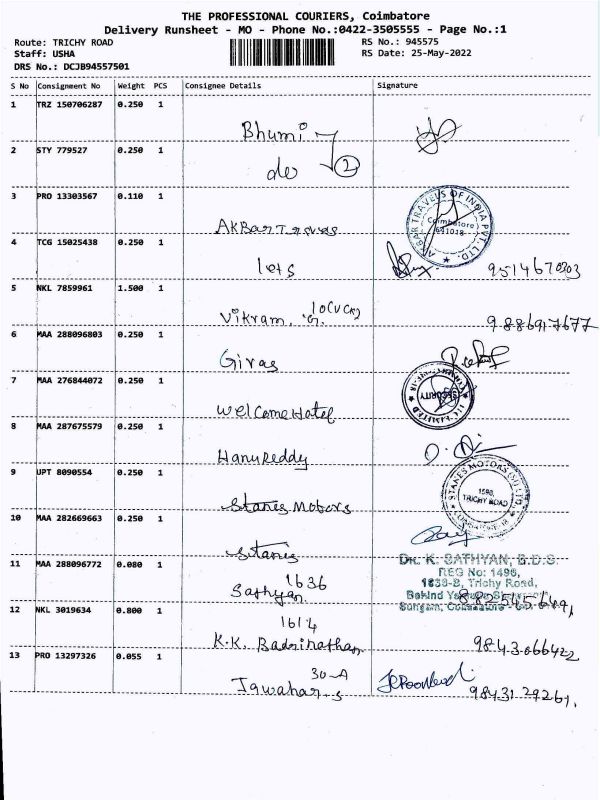 THE PROFESSIONAL COURIERS, Coimbatore
Delivery Runsheet - MO - Phone No.:0422-3505555 - Page No.:1
Route: TRICHY ROAD
RS No.: 945575
Staff: USHA
RS Date: 25-May-2022
DRS No.: DCJB94557501
S No Consignment No Weight PCS Consignee Details Signature
1 TRZ 150706287 0.250 1
Bhumi
2 STY 779527 0.250 1
do 2
3 PRO 13303567 0.110 1
AKBar Travels
AKBAR TRAVELS OF INDIA PVT. LTD.
Coimbatore
641018
4 TCG 15025438 0.250 1
lets 9514670303
5 NKL 7859961 1.500 1
10(VCR)
Vikram. G. 9886917677
6 MAA 288096803 0.250 1
Giras
7 MAA 276844072 0.250 1
SECURITY
Welcome Hotel
8 MAA 287675579 0.250 1
Hanu Reddy
9 UPT 8090554 0.250 1
STANES MOTORS
1598,
TRICHY ROAD
Stanes Motors
10 MAA 282669663 0.250 1
Stanes
11 MAA 288096772 0.080 1
DR. K. SATHYAN, B.D.S.
REG No: 1496,
1636
1638-B, Trichy Road,
Sathyan
Behind
12 NKL 3019634 0.800 1
1614
K.K. Badrinathan 9843066422
13 PRO 13297326 0.055 1
30-A
Jawahar-s 9843129261.